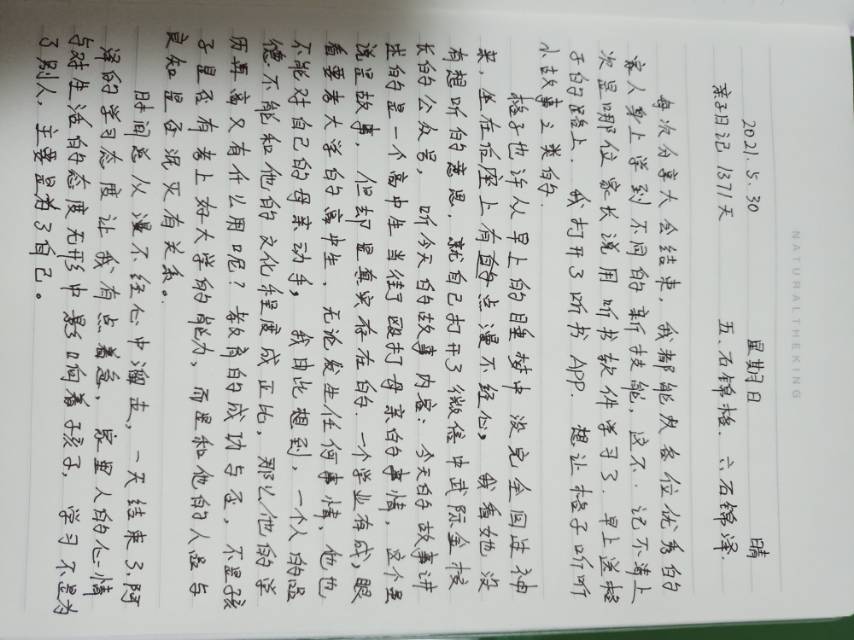 NATURALTHEKING
2021.5.30 星期日 晴
亲子日记1371天 五、石锦格、六石锦泽.
每次分享大会结束，我都能从各位优秀的
家人身上学到不同的新技能，这不.记不清上
次是哪位家长说用听书软件学习了.早上送格
子的路上.我打开了听书APP.想让格子听听
小故事之类的.
格子也许从早上的睡梦中没完全回过神
来，坐在后座上有点漫不经心，我看她没
有想听的意思，就自己打开了微信中武际金校
长的公众号，听今天的故事内容：今天的故事讲
述的是一个高中生当街殴打母亲的事情，这个虽
说是故事，但却是真实存在的.一个学业有成，眼
看要考大学的高中生、无论发生任何事情，他也
不能对自己的母亲动手，我由此想到，一个人的品
德不能和他的文化程度成正比，那么他的学
历再高又有什么用呢？教育的成功与否，不是孩
子是否有考上好大学的能力，而是和他的人品与
良知是否泯灭有关系。
时间总从漫不经心中溜走，一天结束了.阿
泽的学习态度让我有点着急，家里人的心情
与对生活的态度无形中影响着子孩子，学习不是为
了别人，主要是为了自己。